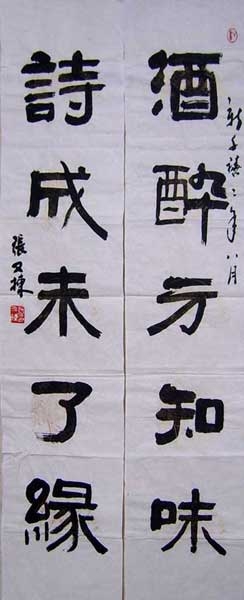 新千禧二年八月
酒醉方知味
詩成未了緣
張又棟